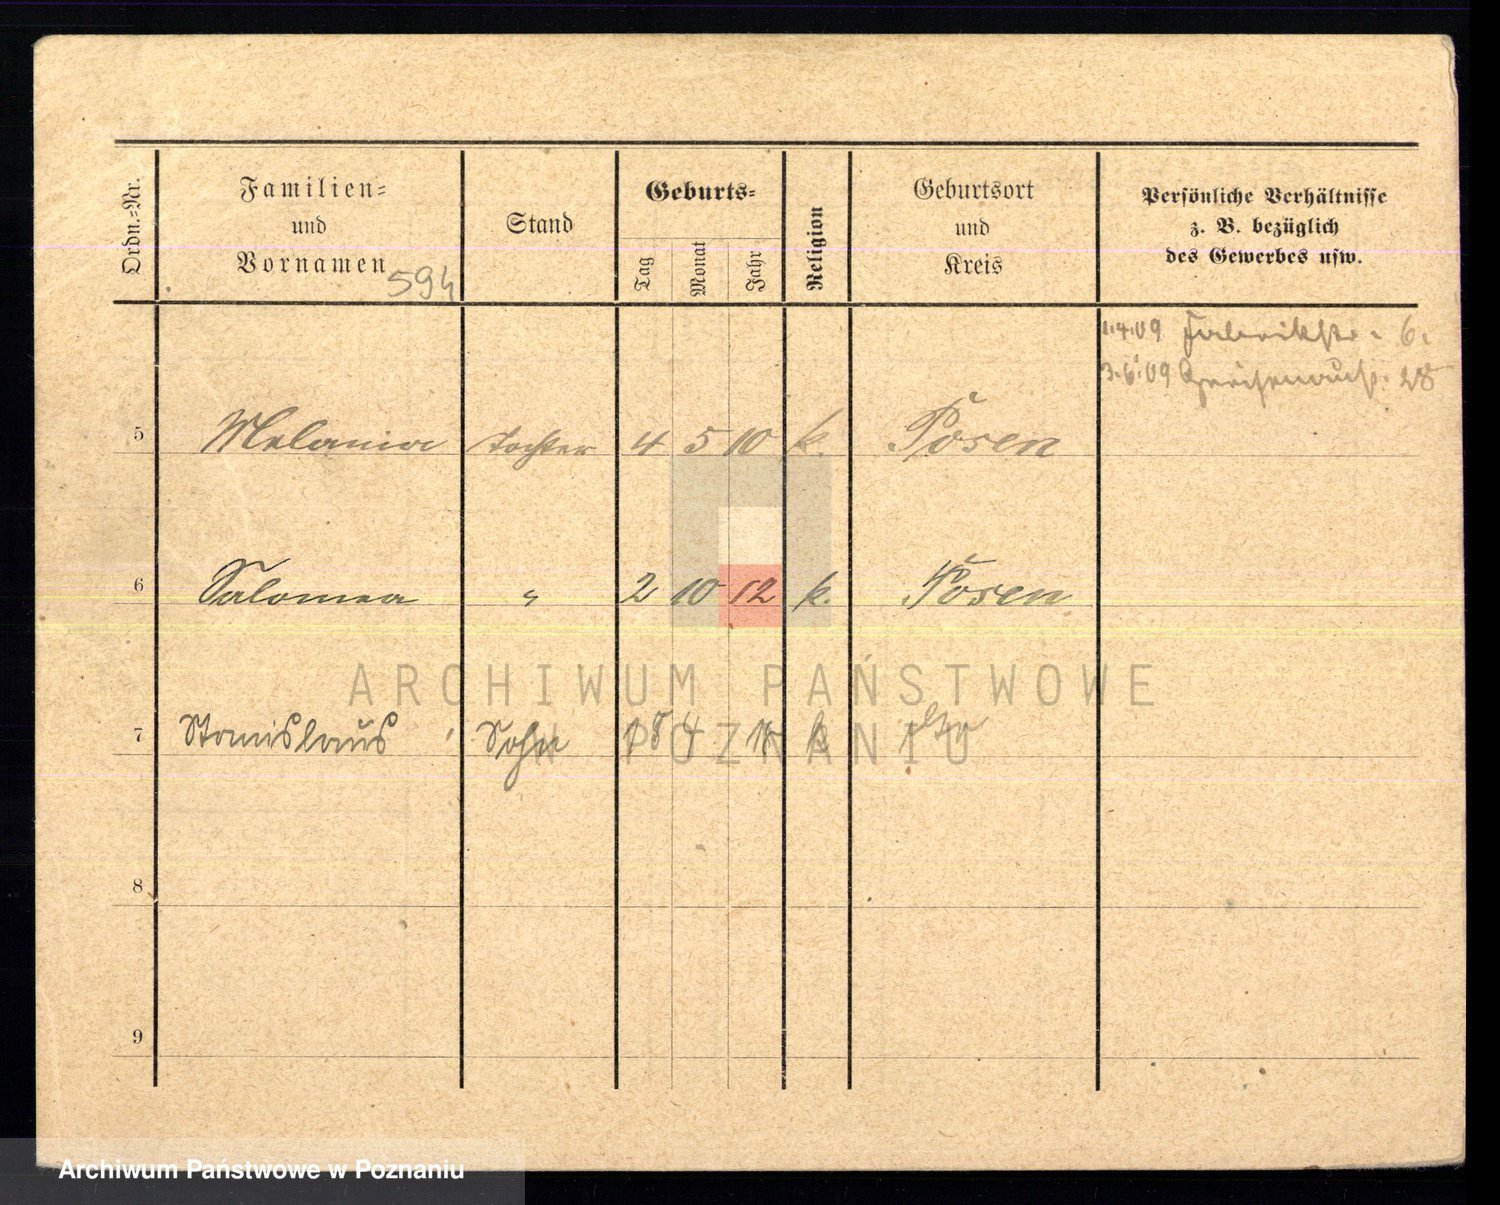 Ordn.-Nr.
Familien-
und
Vornamen
594
Stand
Geburts-
Tag
Monat
Jahr
Religion
Geburtsort
und
Kreis
Persönliche Verhältnisse
z. B. bezüglich
des Gewerbes usw.
1.4.09 Fabrikstr. 6.
3.6.09 28
5 Melania Tochter 4 5 10 k. Posen
6 Salomea " 2 10 12 k. Posen
ARCHIWUM PAŃSTWOWE
W POZNANIU
7 Stanislaus Sohn 18 4 k
8
9
Archiwum Państwowe w Poznaniu